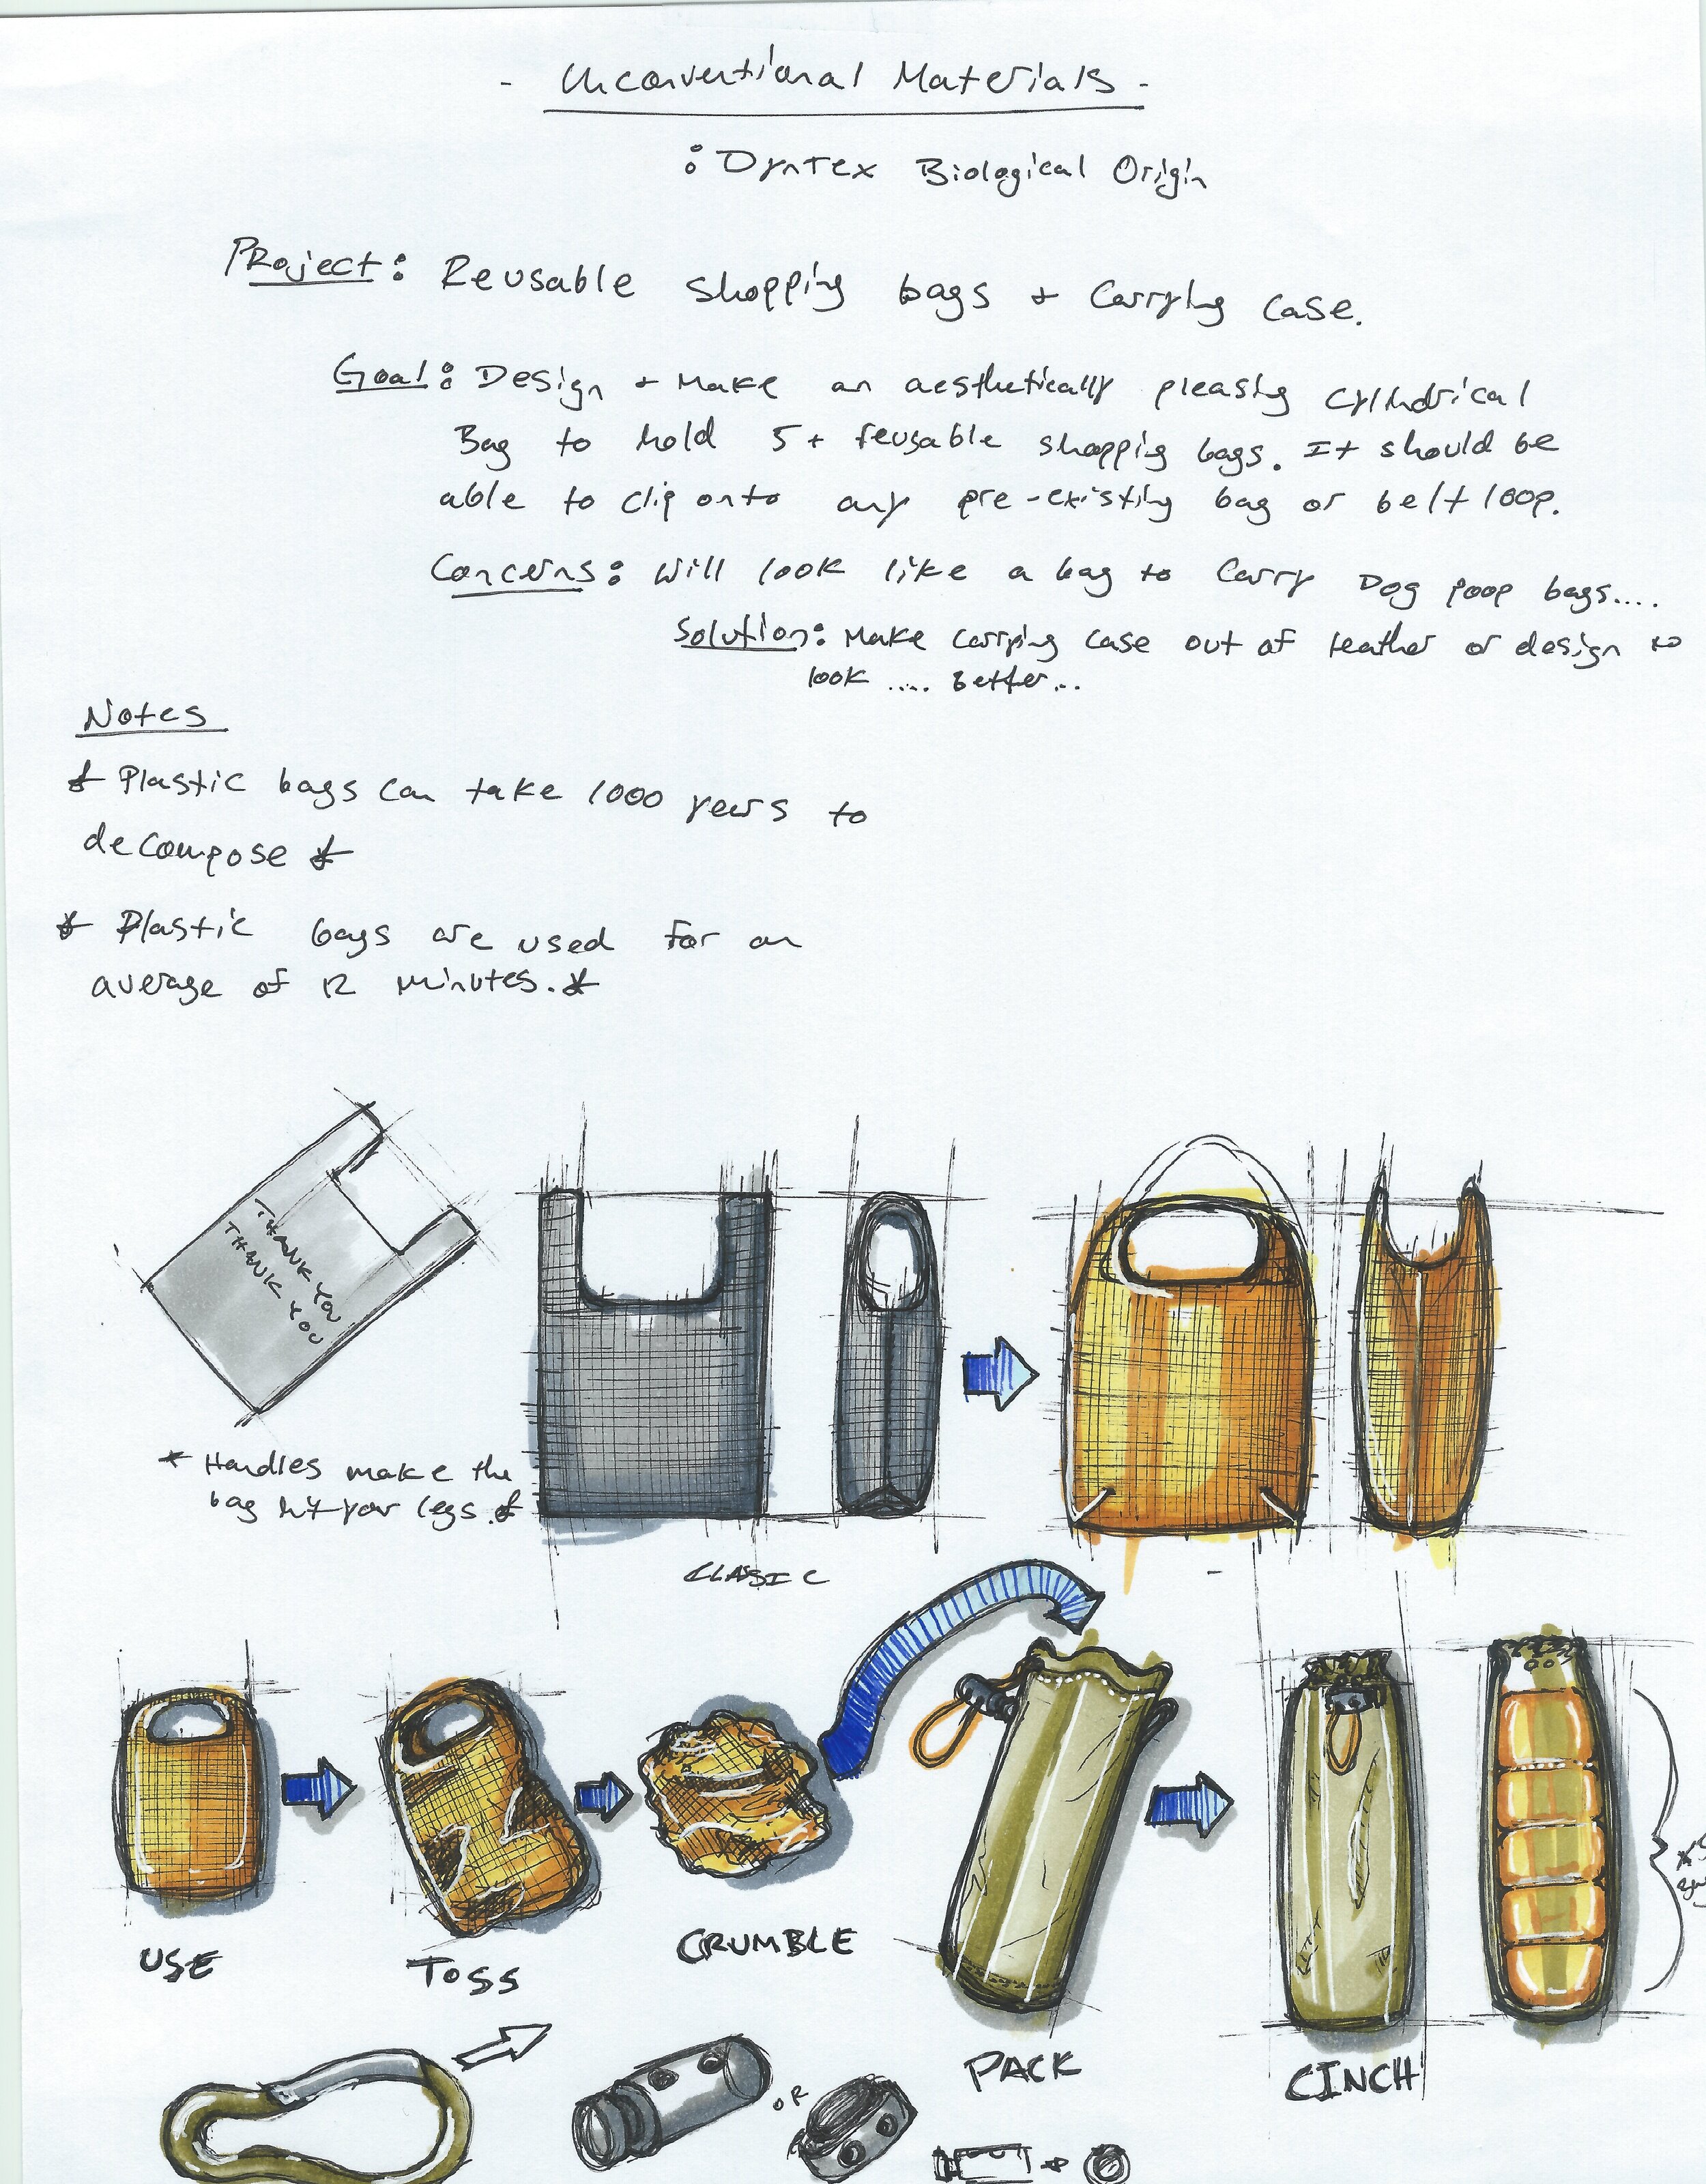 - Unconventional Materials -
: Dyntex Biological Origin
Project: Reusable shopping bags + Carrying Case.
Goal: Design + Make an aesthetically pleasing cylindrical
Bag to hold 5+ reusable shopping bags. It should be
able to clip onto any pre-existing bag or belt loop.
Concerns: Will look like a bag to carry Dog poop bags....
Solution: Make carrying case out of leather or design to
look .... Better...
Notes
* Plastic bags can take 1000 years to
decompose *
* Plastic bags are used for an
average of 12 minutes. *
THANK YOU
THANK YOU
* Handles make the
bag hit your legs. *
CLASIC
USE
TOSS
CRUMBLE
PACK
CINCH
OR